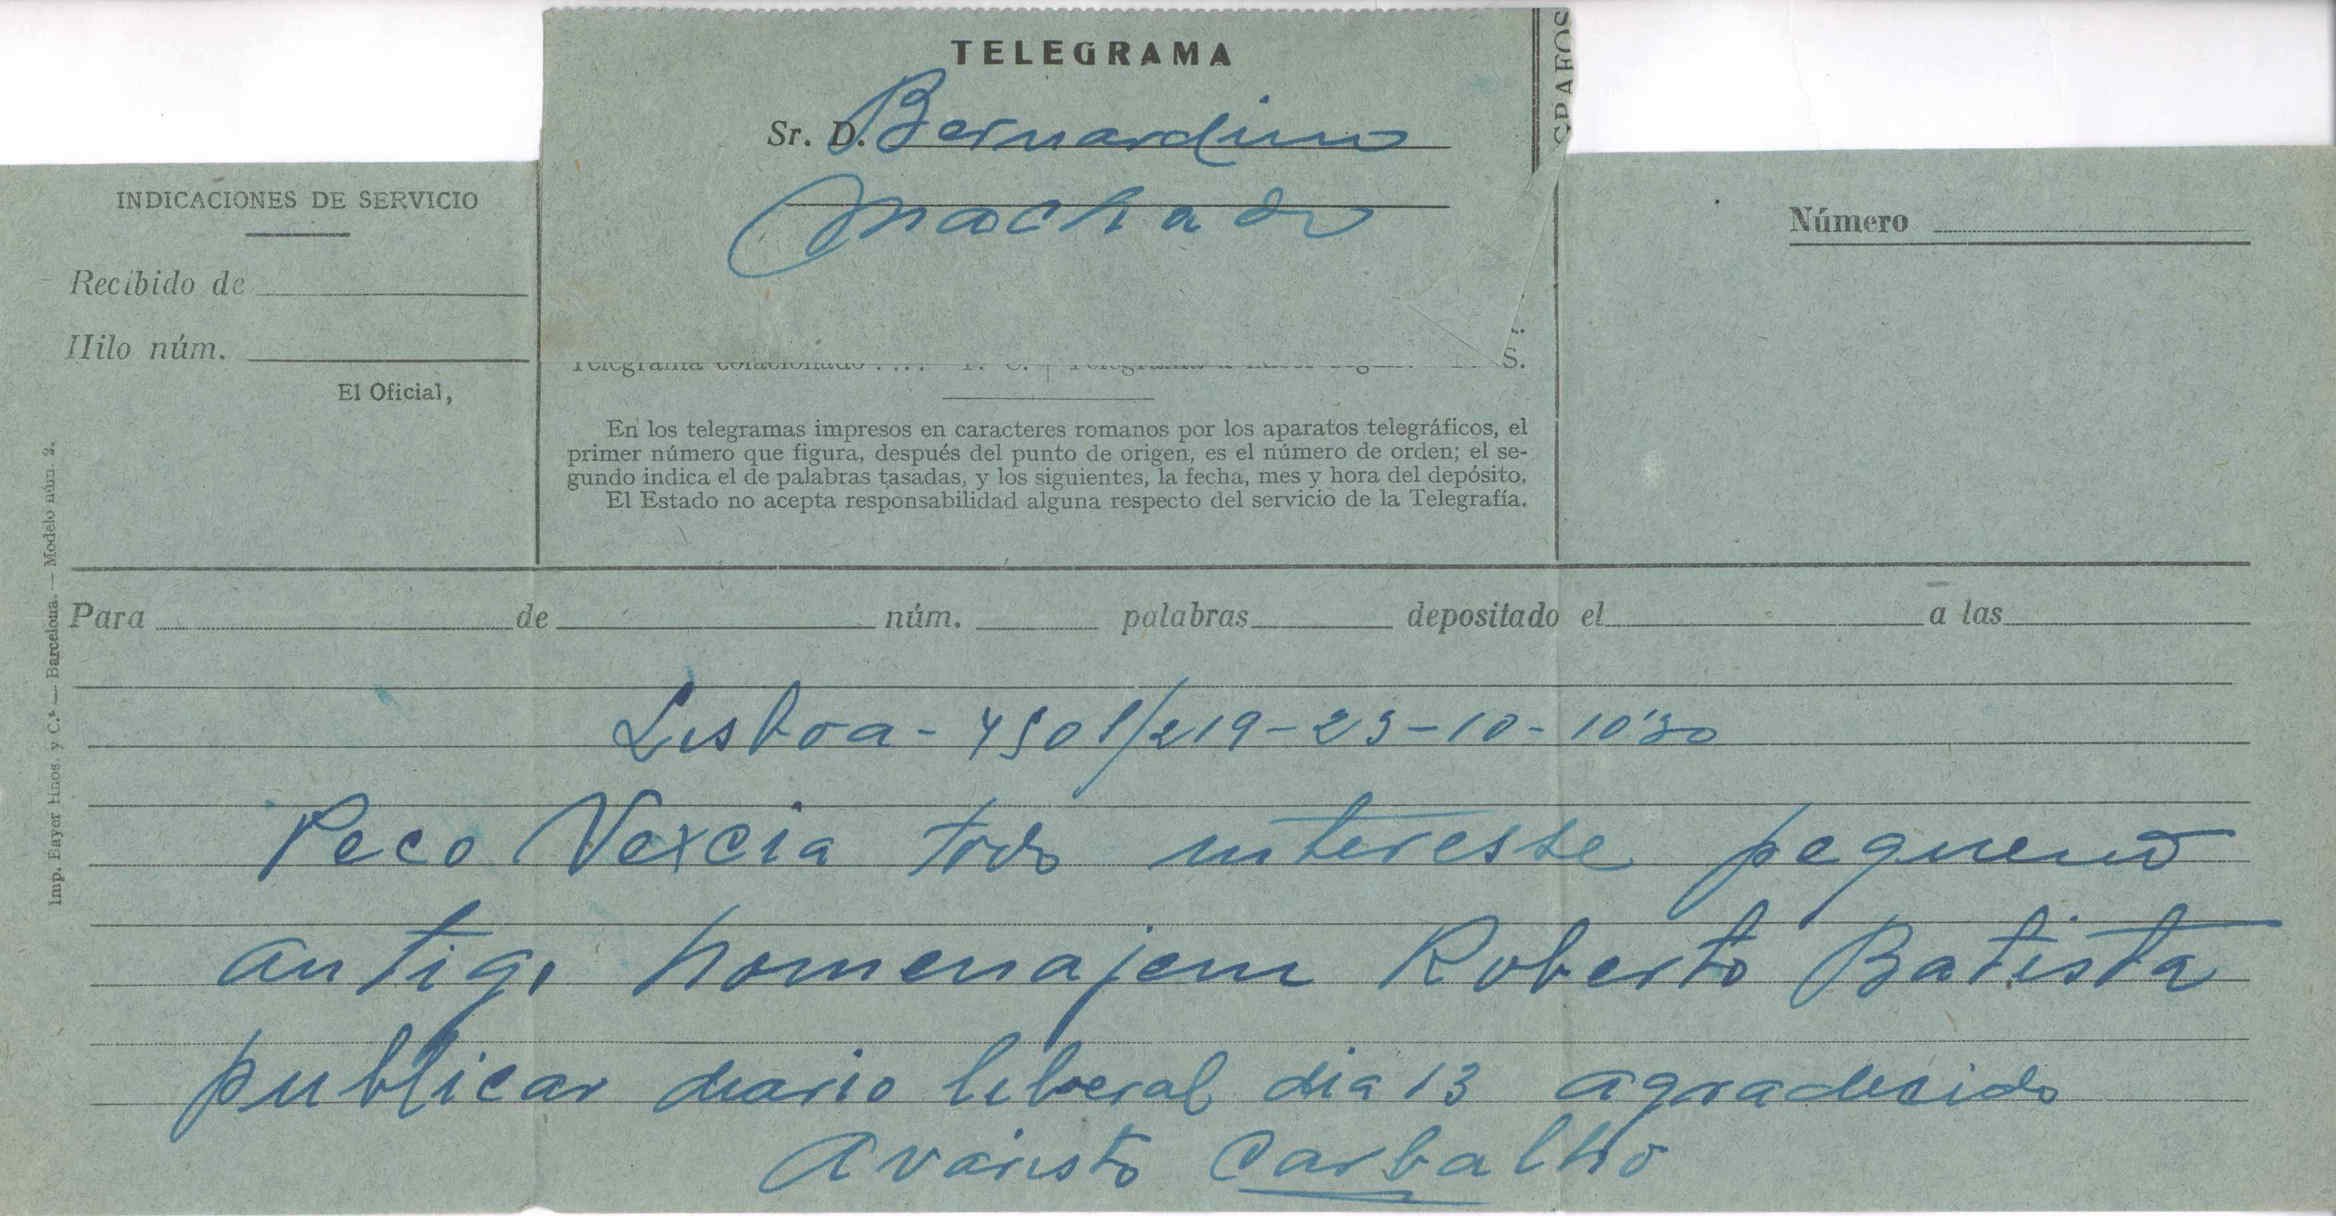 TELEGRAMA
Sr. D. Bernardino
Machado
GRAFOS
INDICACIONES DE SERVICIO
Recibido de
Hilo núm.
El Oficial,
Número
S.
Telegrama colacionado
En los telegramas impresos en caracteres romanos por los aparatos telegráficos, el
primer número que figura, después del punto de origen, es el número de orden; el se-
gundo indica el de palabras tasadas, y los siguientes, la fecha, mes y hora del depósito.
El Estado no acepta responsabilidad alguna respecto del servicio de la Telegrafía.
Imp. Bayer Hnos. y C.ª — Barcelona. — Modelo núm. 2.
Para de núm. palabras depositado el a las
Lisboa - 4501/219-23-10-10'30
Peco Vexcia todo interesse pequeno
antigo homenajem Roberto Batista
publicar diario liberal dia 13 agradecido
Avaristo Carbalho